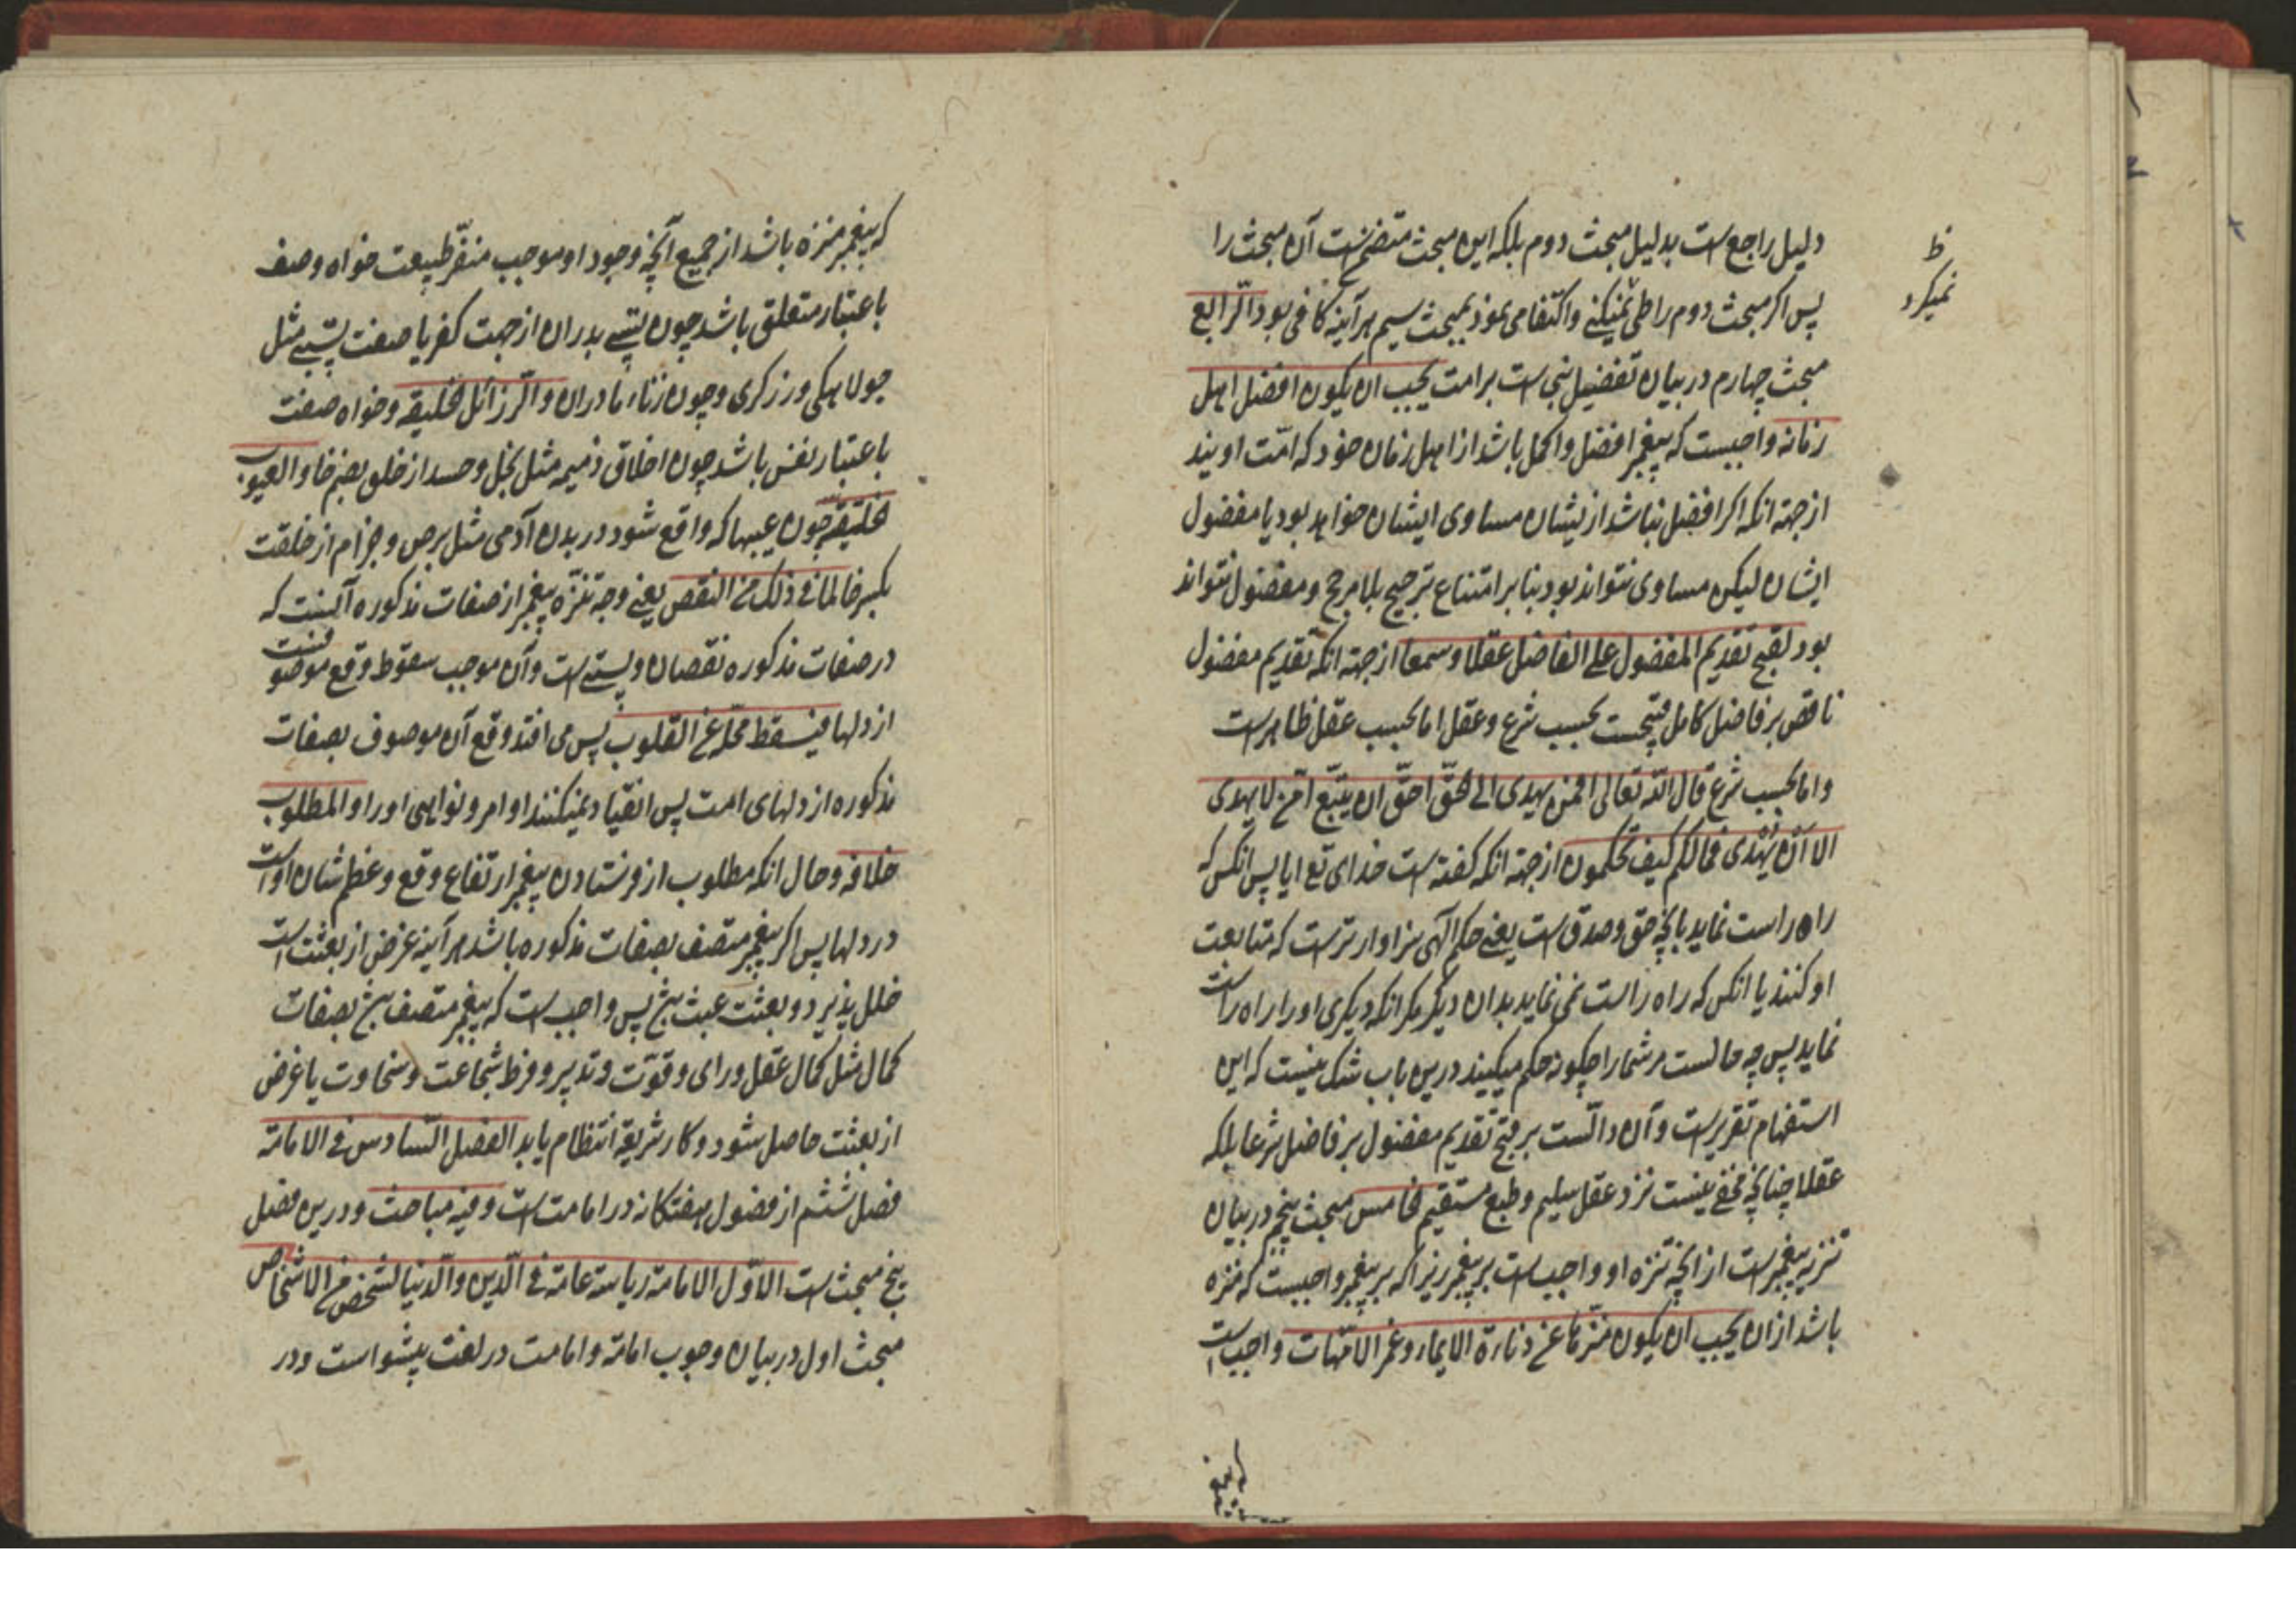 دلیل راجع است بدلیل مبحث دوم بلکه این مبحث متضمن است آن مبحث را
پس اکر مبحث دوم را طی نمیکنی و اکتفا می نمود بمبحث سیم هر آینه کافی بود الرابع
مبحث چهارم در بیان تفضیل نبی است بر امت یجب ان یکون افضل اهل
زمانه واجبست که پیغمبر افضل و اکمل باشد از اهل زمان خود که امّت اویند
از جهته انکه اکر افضل نباشد از یشان مساوی ایشان خواهد بود یا مفضول
ایشان لیکن مساوی نتواند بود بنا بر امتناع ترجیح بلا مرجح و مفضول نتواند
بود لقبح تقدیم المفضول علی الفاضل عقلا و سمعا از جهته انکه تقدیم مفضول
ناقص بر فاضل کامل قبیحست بحسب شرع و عقل اما بحسب عقل ظاهر است
و اما بحسب شرع قال اللّه تعالی افمن یهدی الی الحقّ احقّ ان یتّبع امّن لا یهدی
الا اَنْ یُهْدی فمالکم کیف تحکمون از جهته انکه کفته است خدای تع ایا پس انکس که
راه راست نماید بانچه حق و صدق است یعنی حکم آلهی سزاوار ترست که متابعت
او کنند یا انکس که راه راست نمی نماید بدان دیکر مکر انکه دیکری او را راه راست
نماید پس چه حالست مر شما را چکونه حکم میکیند درین باب شک نیست که این
استفهام تقریرست و آن دالّست بر قبح تقدیم مفضول بر فاضل شرعا بلکه
عقلا چنانچه مخفی نیست نزد عقل سلیم و طبع مستقیم الخامس مبحث پنجم در بیان
تنزیه پیغمبرست از انچه تنزه او واجب است بر پیغمبر زیرا که بر پیغمبر واجبست که منزه
باشد از ان یجب ان یکون منزّها عن دناءة الاباء و عهر الامّهات واجب است
ظ
نمیکرد
که پیغمبر
که پیغمبر منزه باشد از جمیع آنچه وجود او موجب منفّر طبیعت خواه وصف
باعتبار متعلق باشد چون پستی پدران از جهت کفر یا صفت پستی مثل
جولاهکی و رزکری و چون زناء مادران و الرّزائل الخلیقه و خواه صفت
باعتبار نفس باشد چون اخلاق ذمیمه مثل بخل و حسد از خلق بضم خا و العیوب
الخلیقیّه چون عیبها که واقع شود در بدن آدمی مثل برص و جزام از خلقت
بکسر خا لما فی ذلک من النقص یعنی وجه تنزّه پیغمبر از صفات مذکوره آنست که
در صفات مذکوره نقصان و پستی است و آن موجب سقوط وقع موصوفست
از دلها فیسقط محلّه عن القلوب پس می افتد وقع آن موصوف بصفات
مذکوره از دلهای امت پس انقیاد نمیکنند اوامر و نواهی او را و المطلوب
خلافه و حال انکه مطلوب از فرستادن پیغمبر ارتفاع وقع و عظم شان او است
در دلها پس اکر پیغمبر متصف بصفات مذکوره باشد هر آینه غرض از بعثت است
خلل پذیرد و بعثت عبث پس واجب است که پیغمبر متصف بصفات
کمال مثل کمال عقل و رای و قوّت و تدبیر و فرط شجاعت و سخاوت یا غرض
از بعثت حاصل شود و کار شریعة انتظام یابد الفصل السّادس فی الامامة
فصل ششم از فصول هفتکانه در امامت است و فیه مباحث و درین فصل
پنج مبحث است الاوّل الامامة ریاسة عامة فی الّدین و الّدنیا لشخص من الاشخاص
مبحث اول در بیان وجوب امامة و امامت در لغت پیشواست و در